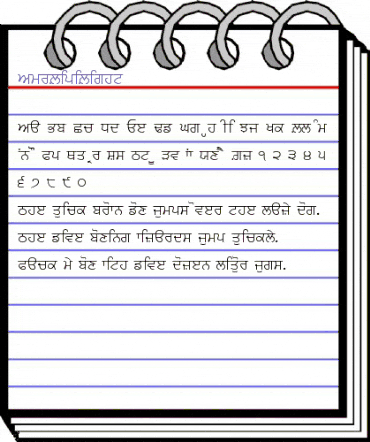 ਅਮਰਲ਼ਪਿਲ਼ਿਗਿਹਟ
ਅੳ ਭਬ ਛਚ ਧਦ ਓੲ ਢਡ ਘਗ ੍ਹਹ ੀਿ ਝਜ ਖਕ ਲ਼ਲ ੰਮ
ਂਨ ੌੋ ਫਪ ਥਤ ੍ਰਰ ਸ਼ਸ ਠਟ ੂੁ ੜਵ ਾਂ ਯਣ ੈੇ ਗ਼ਜ਼ ੧ ੨ ੩ ੪ ੫
੬ ੭ ੮ ੯ ੦
ਠਹੲ ਤੁਚਿਕ ਬਰੋਾਨ ਡੋਣ ਜੁਮਪਸ ੋਵੲਰ ਟਹੲ ਲੳਜ਼ੇ ਦੋਗ.
ਠਹੲ ਡਵਿੲ ਬੋਣਨਿਗ ਾਜ਼ਿੳਰਦਸ ਜੁਮਪ ਤੁਚਿਕਲੇ.
ਫੳਚਕ ਮੇ ਬੋਣ ਾਟਿਹ ਡਵਿੲ ਦੋਜ਼ੲਨ ਲਤਿੋੁਰ ਜੁਗਸ.